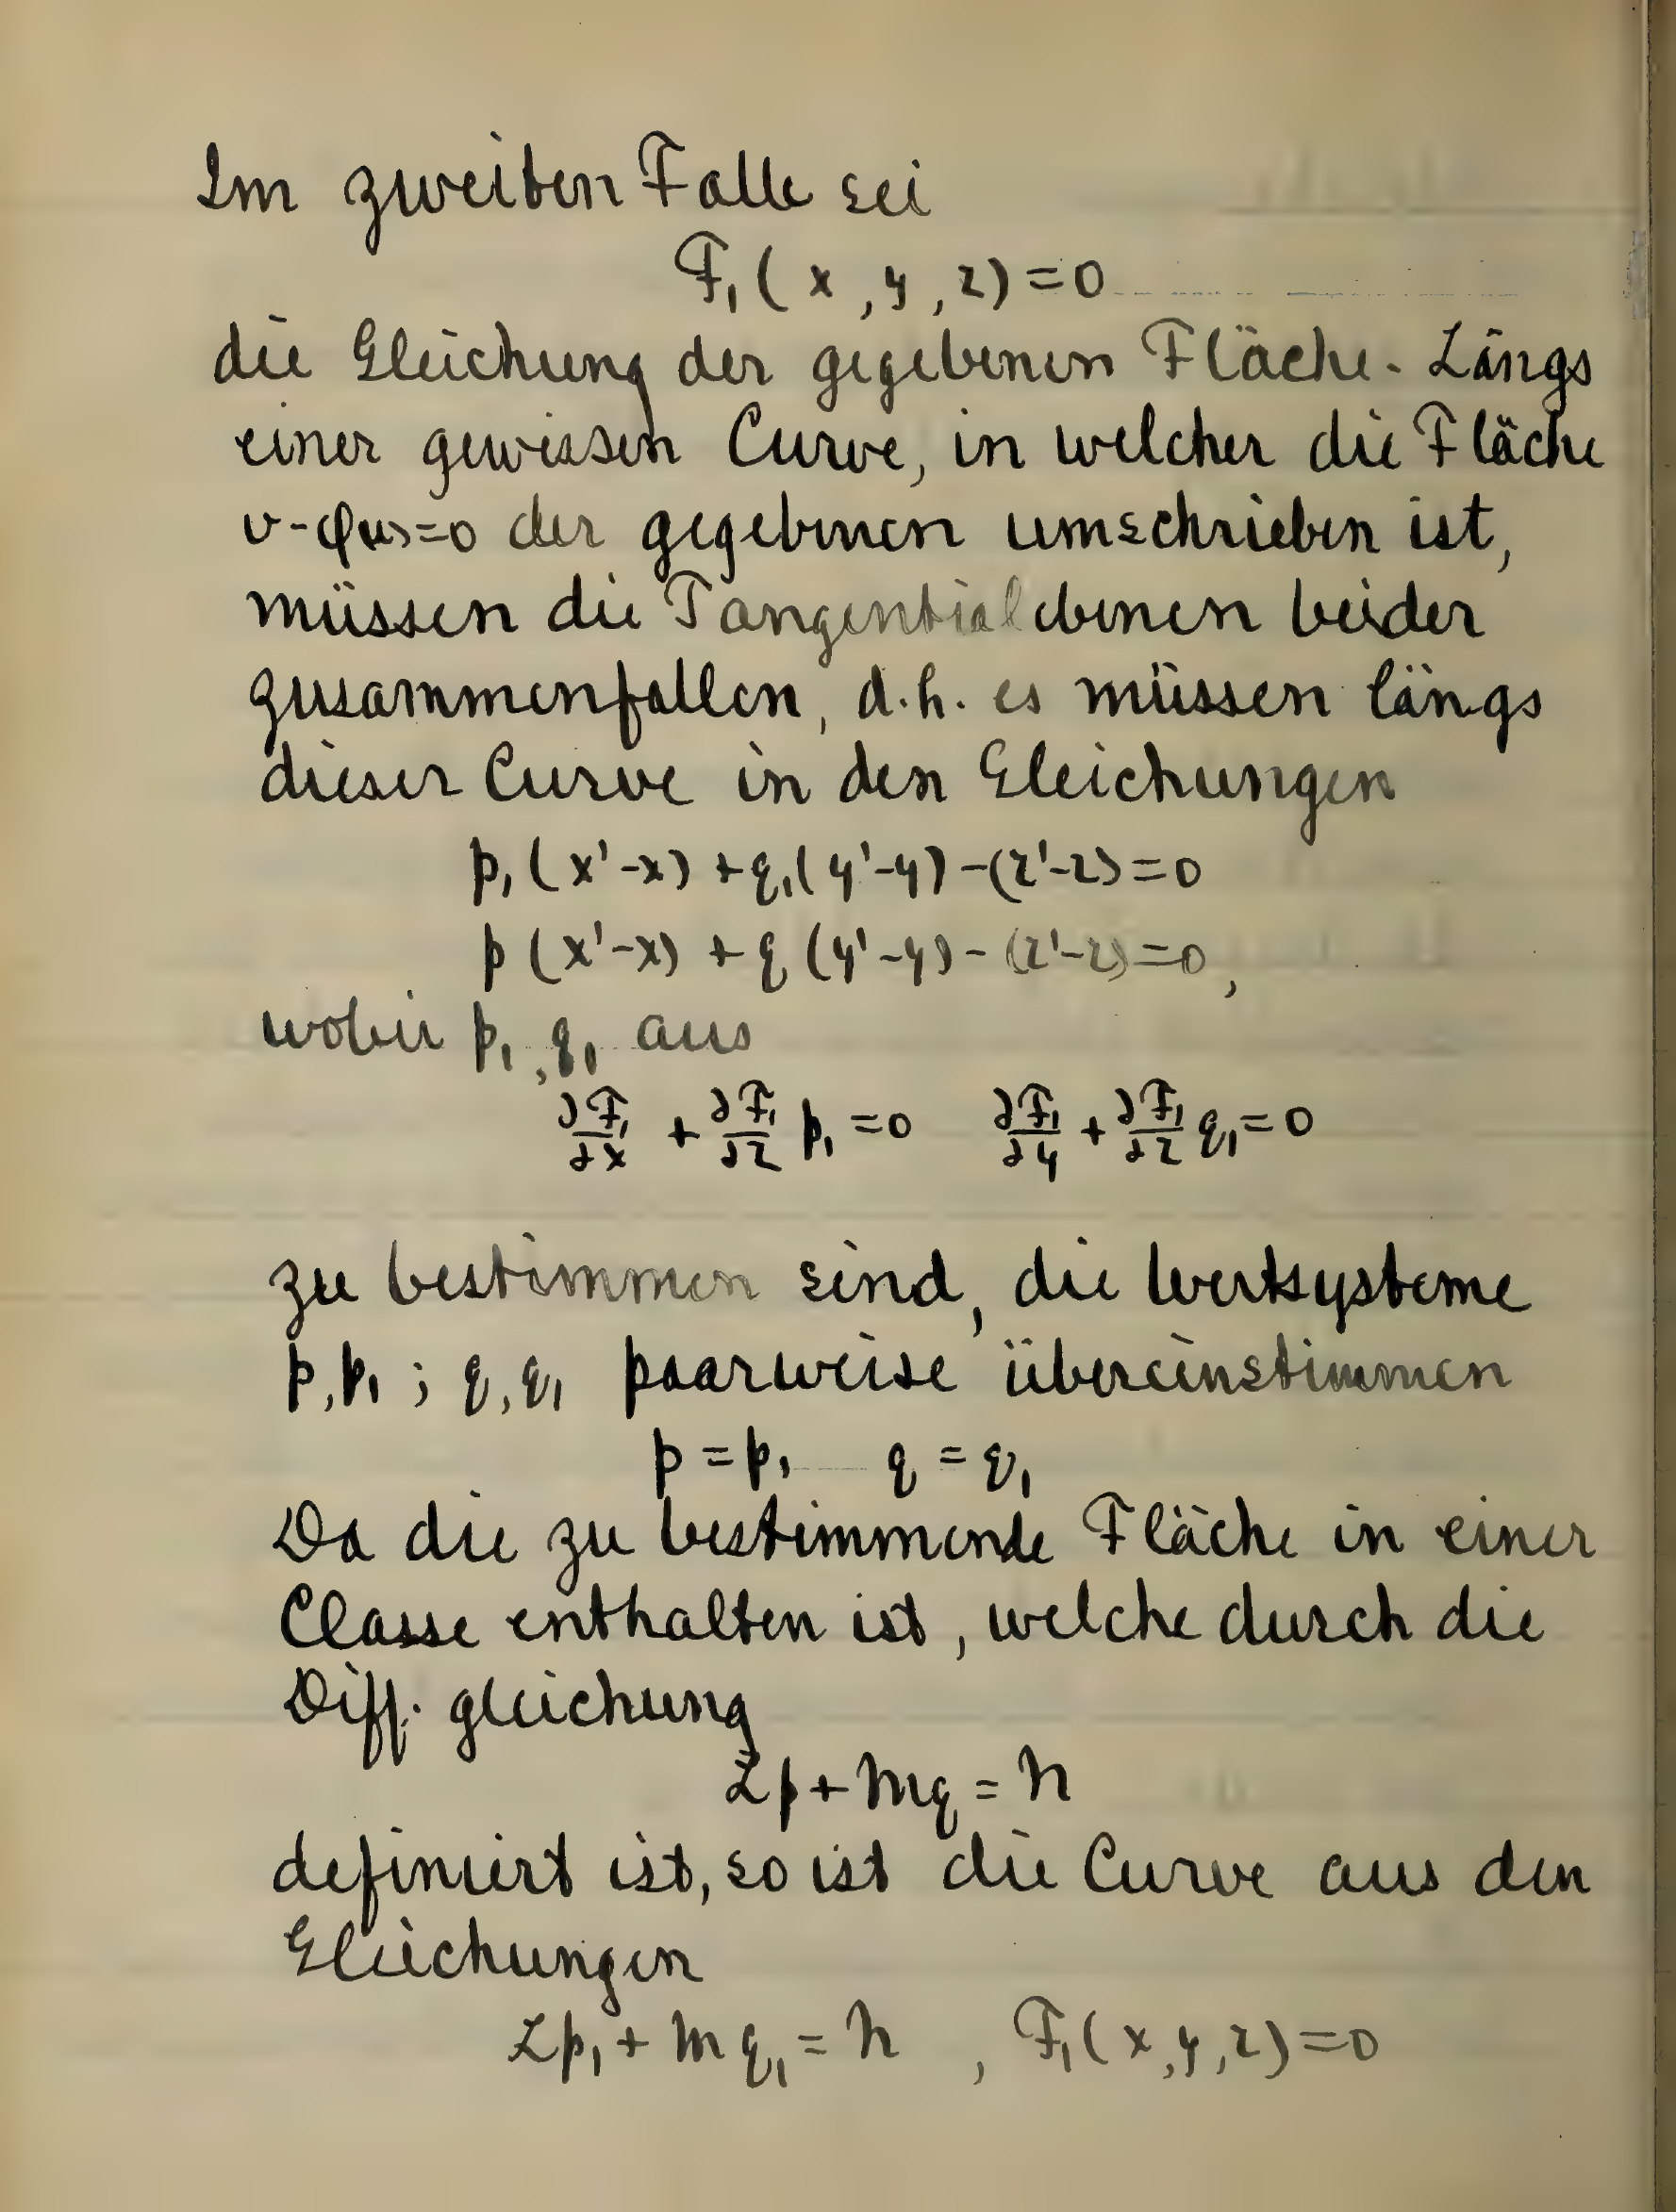 Im zweiten Falle sei
F₁(x, y, z)=0
die Gleichung der gegebenen Fläche. Längs
einer gewissen Curve, in welcher die Fläche
v-φ(u)=0 der gegebenen umschrieben ist,
müssen die Tangentialebenen beider
zusammenfallen, d.h. es müssen längs
dieser Curve in den Gleichungen
p₁(x'-x)+q₁(y'-y)-(z'-z)=0
p(x'-x)+q(y'-y)-(z'-z)=0,
wobei p₁, q₁ aus
∂F₁/∂x + ∂F₁/∂z p₁=0 ∂F₁/∂y + ∂F₁/∂z q₁=0
zu bestimmen sind, die Wertsysteme
p, p₁; q, q₁ paarweise übereinstimmen
p=p₁ q=q₁
Da die zu bestimmende Fläche in einer
Classe enthalten ist, welche durch die
Diff. gleichung
Lp+Mq=N
definiert ist, so ist die Curve aus den
Gleichungen
Lp₁+Mq₁=N , F₁(x,y,z)=0